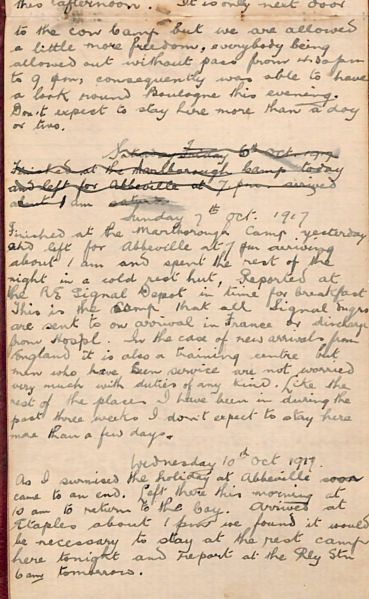 this afternoon. It is only next door
to the con camp but we are allowed
a little more freedom, everybody being
allowed out without pass from 4.30pm
to 9 pm, consequently was able to have
a look round Boulogne this evening.
Don't expect to stay here more than a day
or two.
Saturday 6th Oct. 1917
Finished at the Marlborough Camp today
and left for Abbeville at 7 pm arrived
about 1 am
Sunday 7th Oct. 1917
Finished at the Marlborough Camp yesterday
and left for Abbeville at 7 pm arriving
about 1 am and spent the rest of the
night in a cold rest hut, Reported at
the RE Signal Depot in time for breakfast
This is the Camp that all Signal Engrs
are sent to on arrival in France or discharge
from Hospl. In the case of new arrivals from
England it is also a training centre but
men who have seen service are not worried
very much with duties of any kind. Like the
rest of the places I have been in during the
past three weeks I don't expect to stay here
more than a few days.
Wednesday 10th Oct 1917.
As I surmised the holiday at Abbeville soon
came to an end. Left there this morning at
10 am to return to the Coy. Arrived at
Etaples about 1 pm we found it would
be necessary to stay at the rest camp
here tonight and report at the Rly Stn
6 am tomorrow.